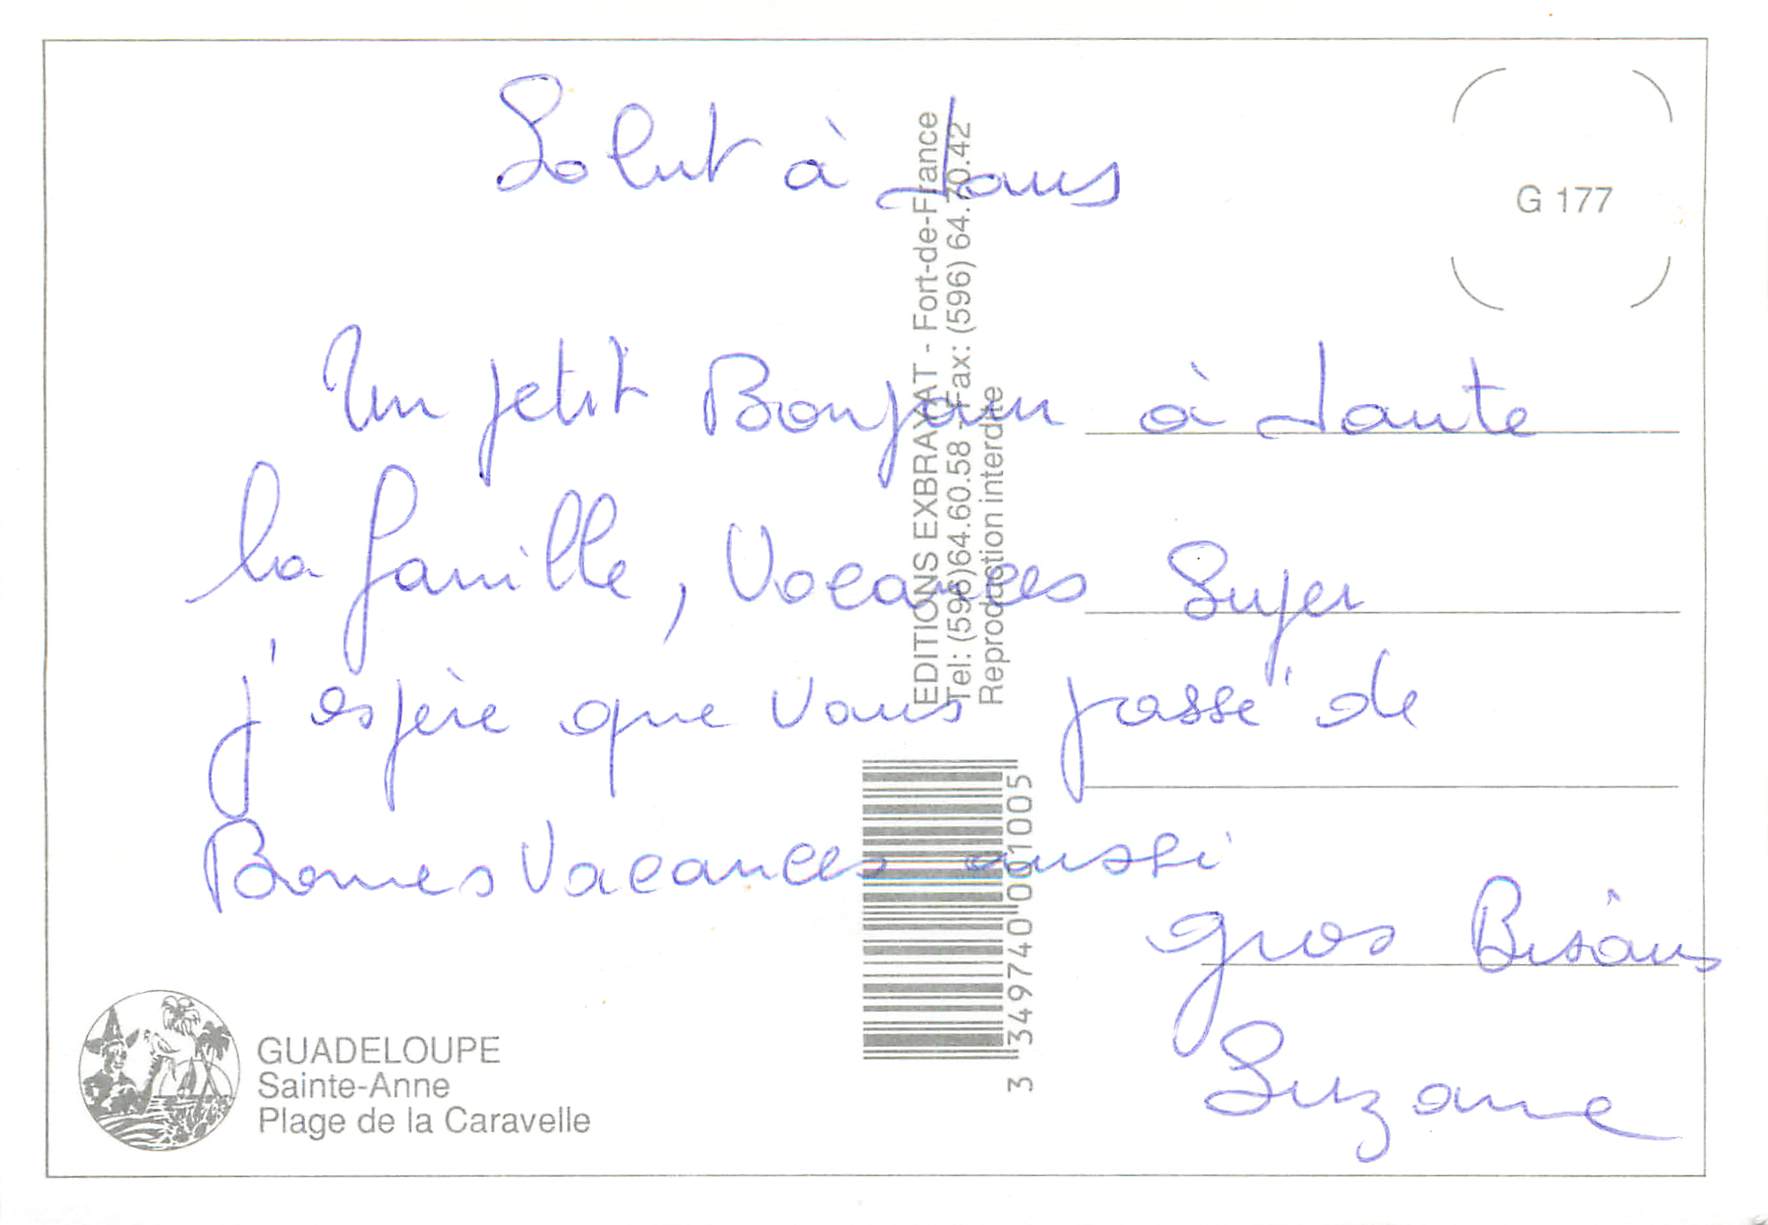 Salut à tous
G 177
Un petit Bonjour à toute
la famille, Vacances Super
j'espère que vous passé de
Bonnes Vacances aussi
gros Bisous
Suzanne
EDITIONS EXBRAYAT - Fort-de-France
Tel: (596)64.60.58 - Fax: (596) 64.70.42
Reproduction interdite
3 349740 001005
GUADELOUPE
Sainte-Anne
Plage de la Caravelle